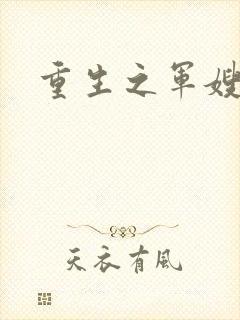 重生之军嫂
天衣有風